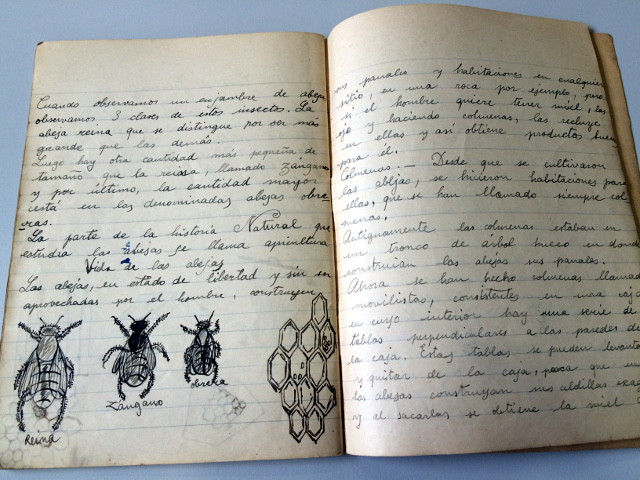 Cuando observamos un enjambre de abejas
observamos 3 clases de estos insectos. La
abeja reina que se distingue por ser más
grande que las demás.
Luego hay otra cantidad más pequeña de
tamaño que la reina, llamado Zángano
y por último, la cantidad mayor
está en las denominadas abejas obre
ras.
La parte de la historia Natural que
estudia las abejas se llama apicultura
Vida de las abejas
Las abejas, en estado de libertad y sin ser
aprovechadas por el hombre, construyen
Reina
Zángano
obrera
sus panales y habitaciones en cualquier
sitio, en una roca por ejemplo, pero
si el hombre quiere tener miel, las
y haciendo colmenas, las recluye
en ellas y así obtiene productos
para él.
Colmenas.- Desde que se cultivaron
las abejas, se hicieron habitaciones para
ellas, que se han llamado siempre col
menas.
Antiguamente las colmenas estaban en
un tronco de árbol hueco en donde
construían las abejas sus panales.
Ahora se han hecho colmenas llamadas
movilistas, consistentes en una caja
en cuyo interior hay una serie de
tablas perpendiculares a las paredes de
la caja. Estas tablas se pueden levantar
y quitar de la caja, para que en
las abejas construyan sus celdillas
y al sacarlas se obtiene la miel